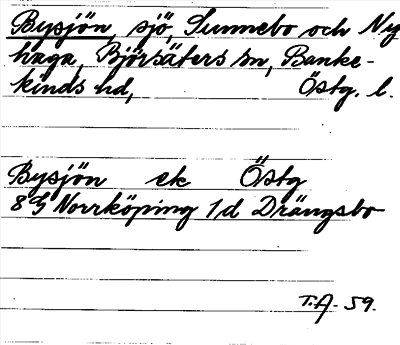 Bysjön, sjö, Sunnebo och Ny
haga, Björsäters sn, Banke-
kinds hd, Östg. l.
Bysjön ek Östg
8G Norrköping 1d Drängsbo
T.A. 59.